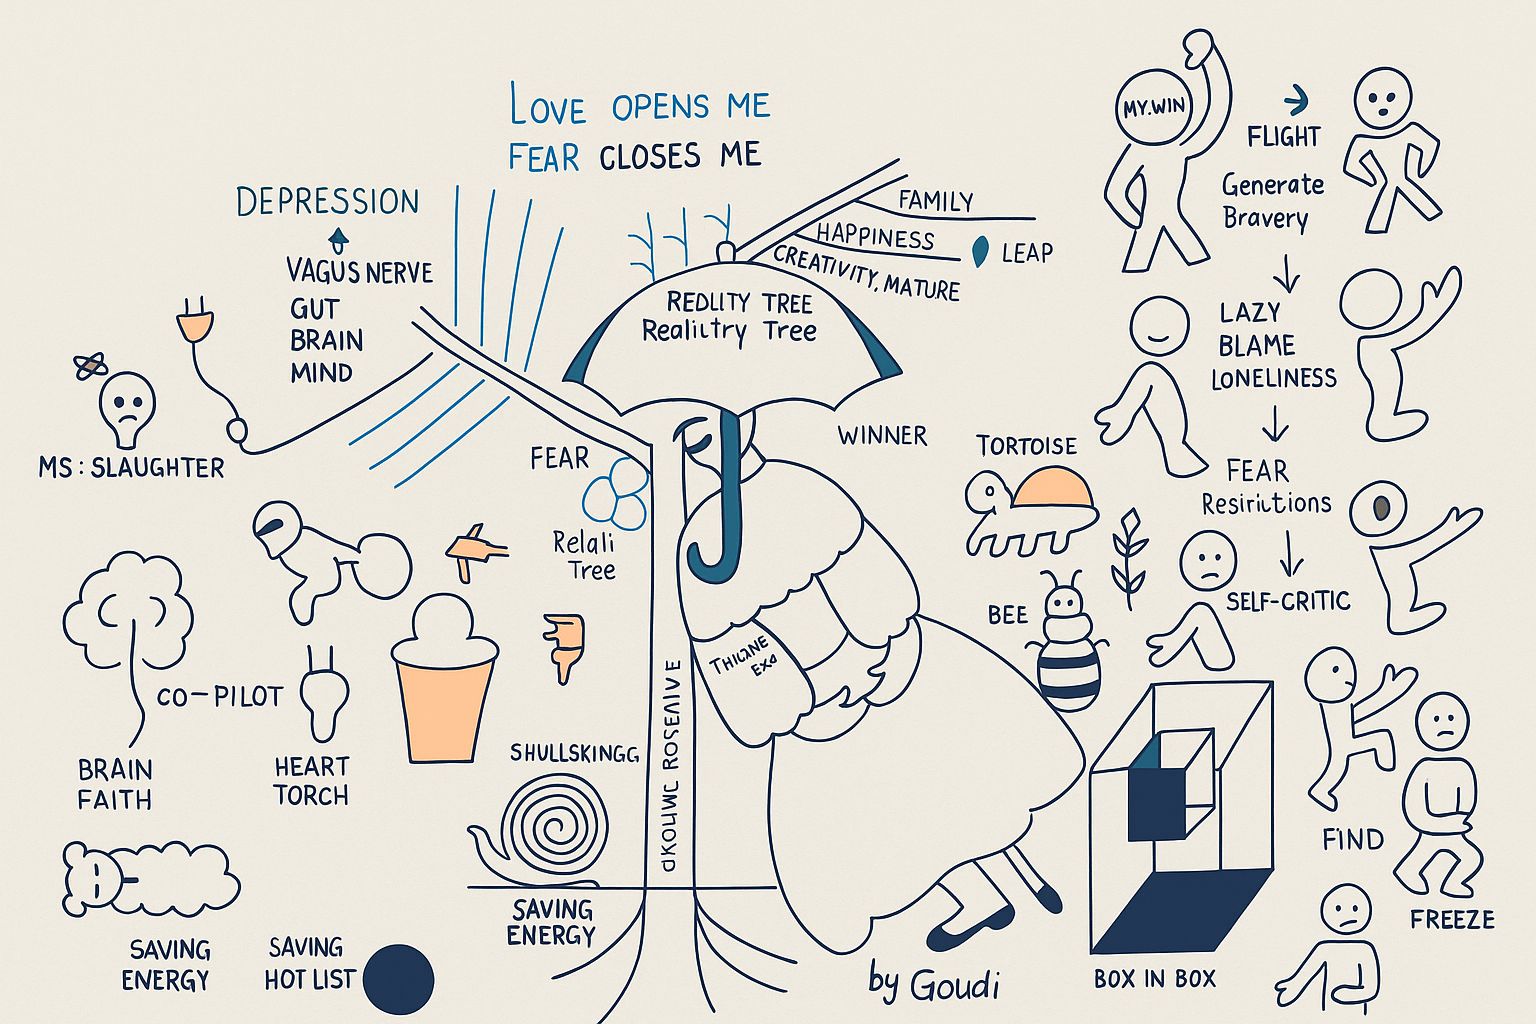 LOVE OPENS ME
FEAR CLOSES ME
DEPRESSION
VAGUS NERVE
GUT
BRAIN
MIND
MS: SLAUGHTER
FAMILY
HAPPINESS
LEAP
CREATIVITY, MATURE
REDLITY TREE
Realiltry Tree
WINNER
FEAR
Relali
Tree
MY.WIN
FLIGHT
Generate
Bravery
LAZY
BLAME
LONELINESS
TORTOISE
FEAR
SELF-CRITIC
BEE
CO-PILOT
BRAIN
FAITH
HEART
TORCH
SHULLSKINGG
SAVING
ENERGY
SAVING
ENERGY
SAVING
HOT LIST
by Goudi
BOX IN BOX
FIND
FREEZE